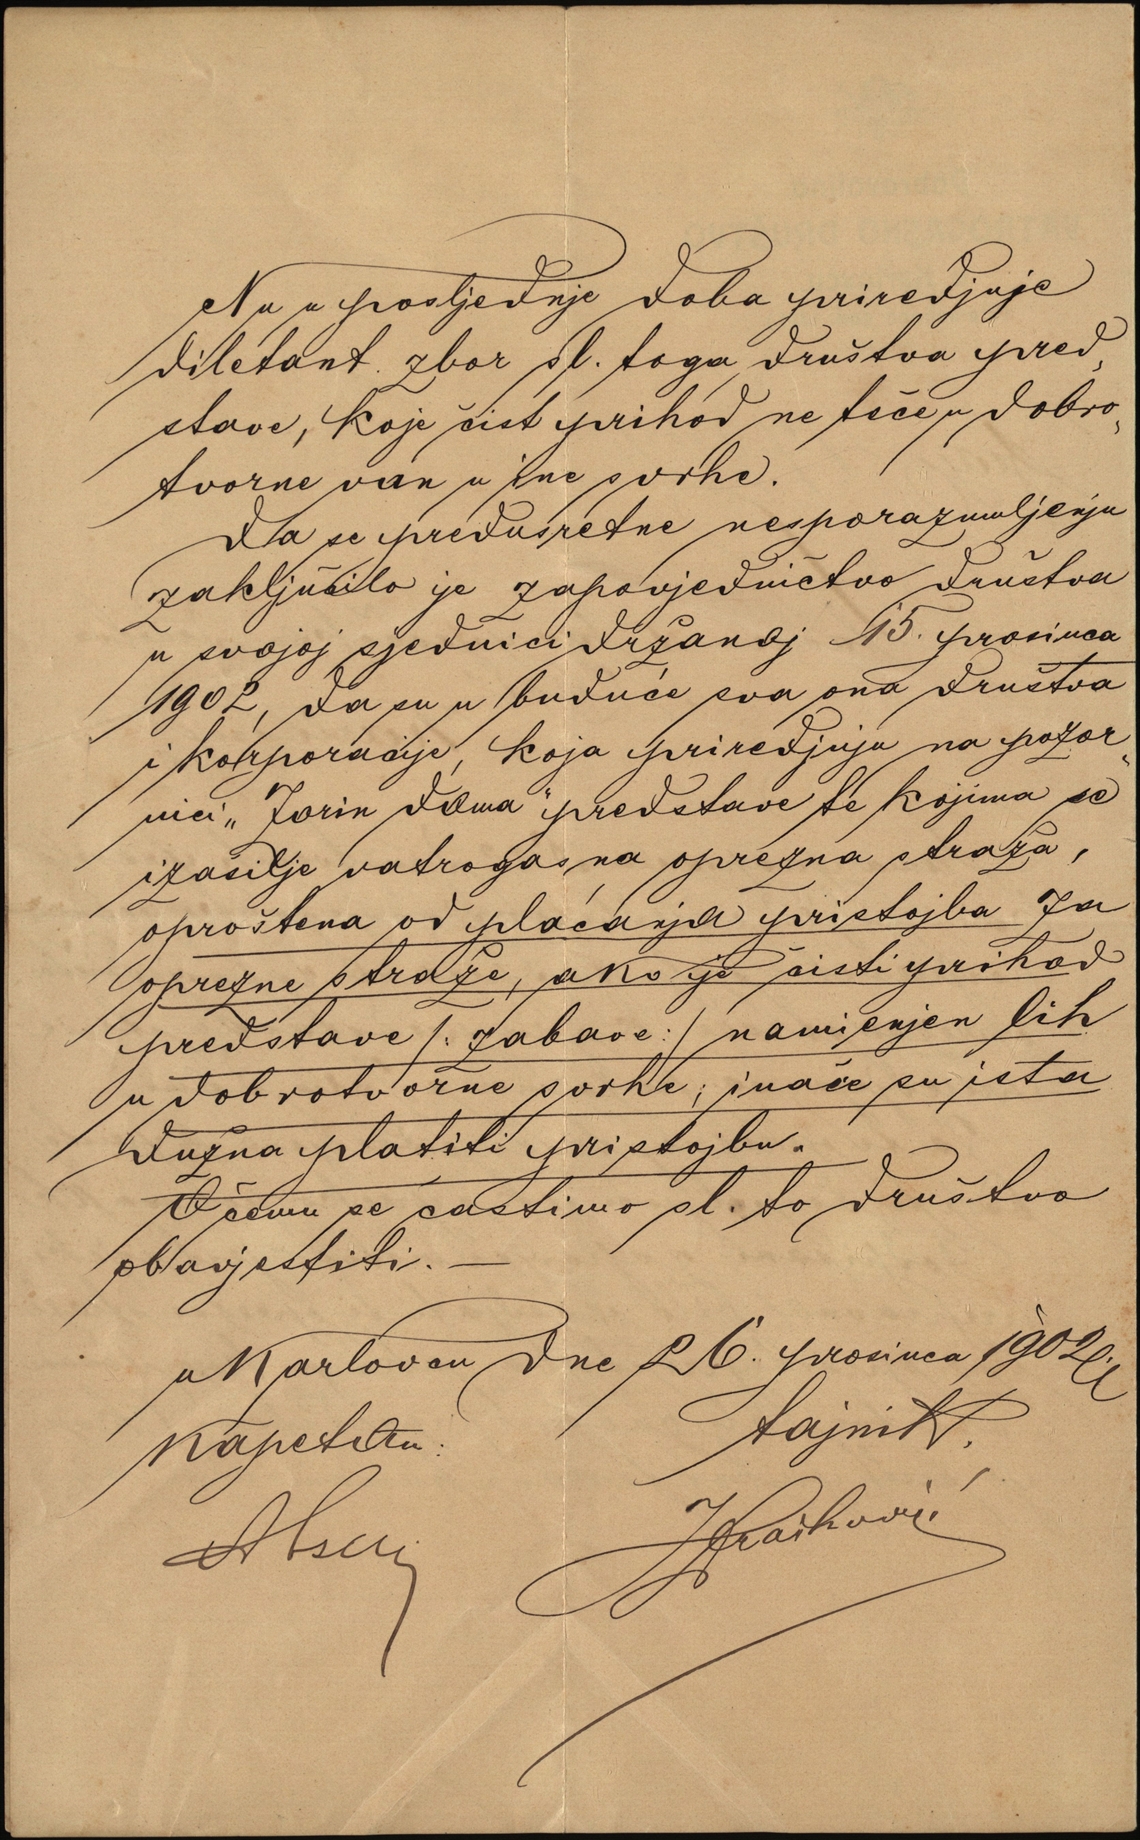 Nu u posljednje doba priredjuje
diletant. zbor sl. toga društva pred„
stave, koje čist prihod ne teče u dobro„
tvorne van u ine svrhe.
Da se predusretne nesporazumljenju
zaključilo je zapovjedničtvo društva
u svojoj sjednici držanoj 15. prosinca
1902, da su u buduće sva ona društva
i korporacije, koja priredjuju na pozor„
nici „Zorin doma" predstave te kojima se
izašilje vatrogasna oprezna straža,
oproštena od plaćanja pristojba za
oprezne straže, ako je čisti prihod
predstave /: zabave :/ namienjen lih
u dobrotvorne svrhe; inače su ista
dužna platiti pristojbu.
O čemu se častimo sl. to društvo
obavjestiti. —
u Karlovcu dne 26. prosinca 1902
Kapetan: tajnik.